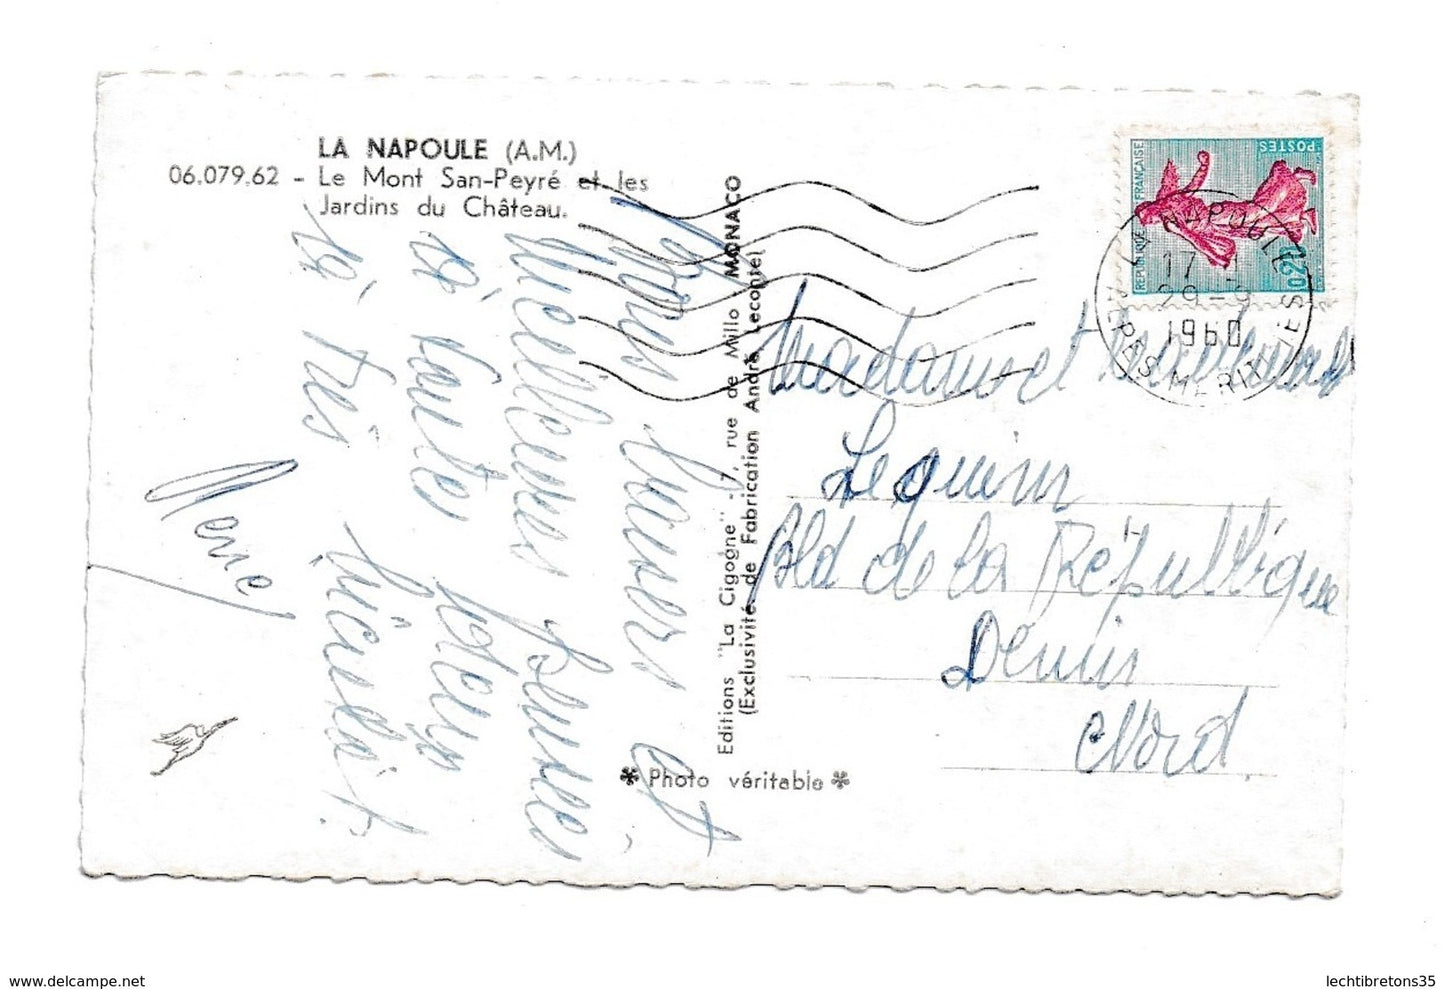 LA NAPOULE (A.M.)
06.079.62 - Le Mont San-Peyré et les
Jardins du Château.
Bons baisers et
meilleures pensées
à toute
la très
Editions "La Cigogne" - 7, rue de Millo MONACO
(Exclusivité de Fabrication André Leconte)
* Photo véritable *
REPUBLIQUE FRANÇAISE
POSTES
0,20
LA NAPOULE
17 H
29-9
1960
ALPES MARITIMES
Madame et
Lequim
Bld de la République
Denain
Nord
www.delcampe.net
lechtibretons35